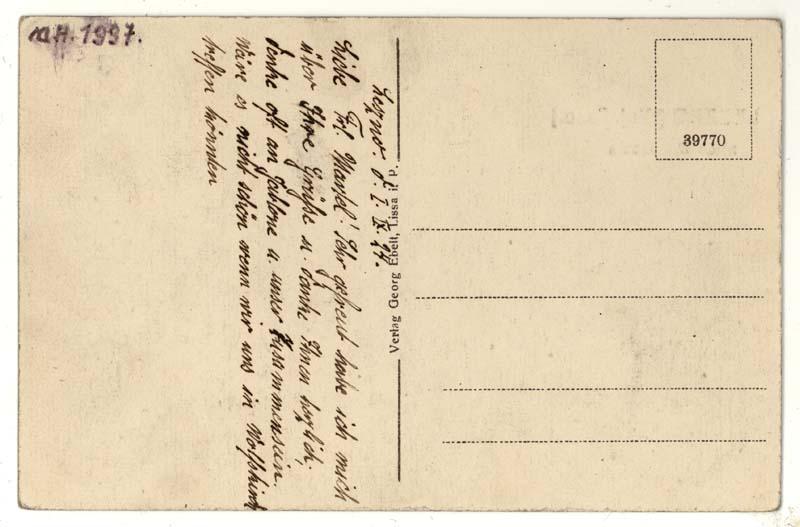 MH. 1997.
Leszno. d. I. IX. 24.
Liebe Frl. Marfel! Sehr gefreut habe ich mich
über Ihre Grüße u. danke Ihnen herzlich,
denke oft an u. unser Zusammensein.
Wäre es nicht schön wenn wir uns in Wolfskirch
treffen könnten
Verlag Georg Ebelt, Lissa i. P.
39770